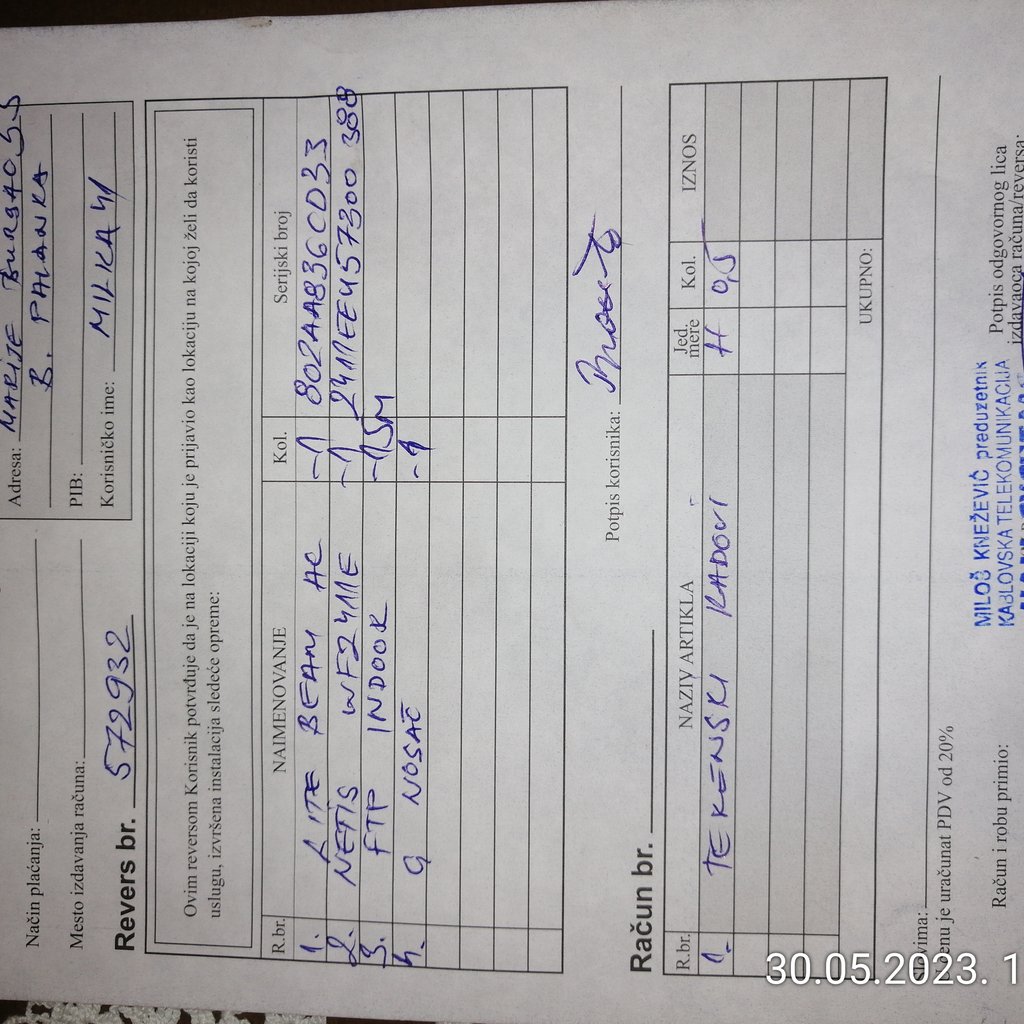 Način plaćanja:
Mesto izdavanja računa:
Adresa: MARIJE BURSAĆ 55
B. PALANKA
PIB:
Korisničko ime: MILKA 41
Revers br. 572932
Ovim reversom Korisnik potvrđuje da je na lokaciji koju je prijavio kao lokaciju na kojoj želi da koristi
uslugu, izvršena instalacija sledeće opreme:
R.br. NAIMENOVANJE Kol. Serijski broj
1. LITE BEAM AC -1 802AA836CD33
2. NETIS WF2411E -1 2411EE457300 388
3. FTP INDOOR -15M
4. G NOSAČ -1
Potpis korisnika:
Račun br.
R.br. NAZIV ARTIKLA Jed. mere Kol. IZNOS
1. TEKENSKI RADOVI H 0,5
UKUPNO:
Slovima:
U cenu je uračunat PDV od 20%
Račun i robu primio:
MILOŠ KNEŽEVIĆ preduzetnik
KABLOVSKA TELEKOMUNIKACIJA
Potpis odgovornog lica
izdavaoca računa/reversa:
30.05.2023. 1